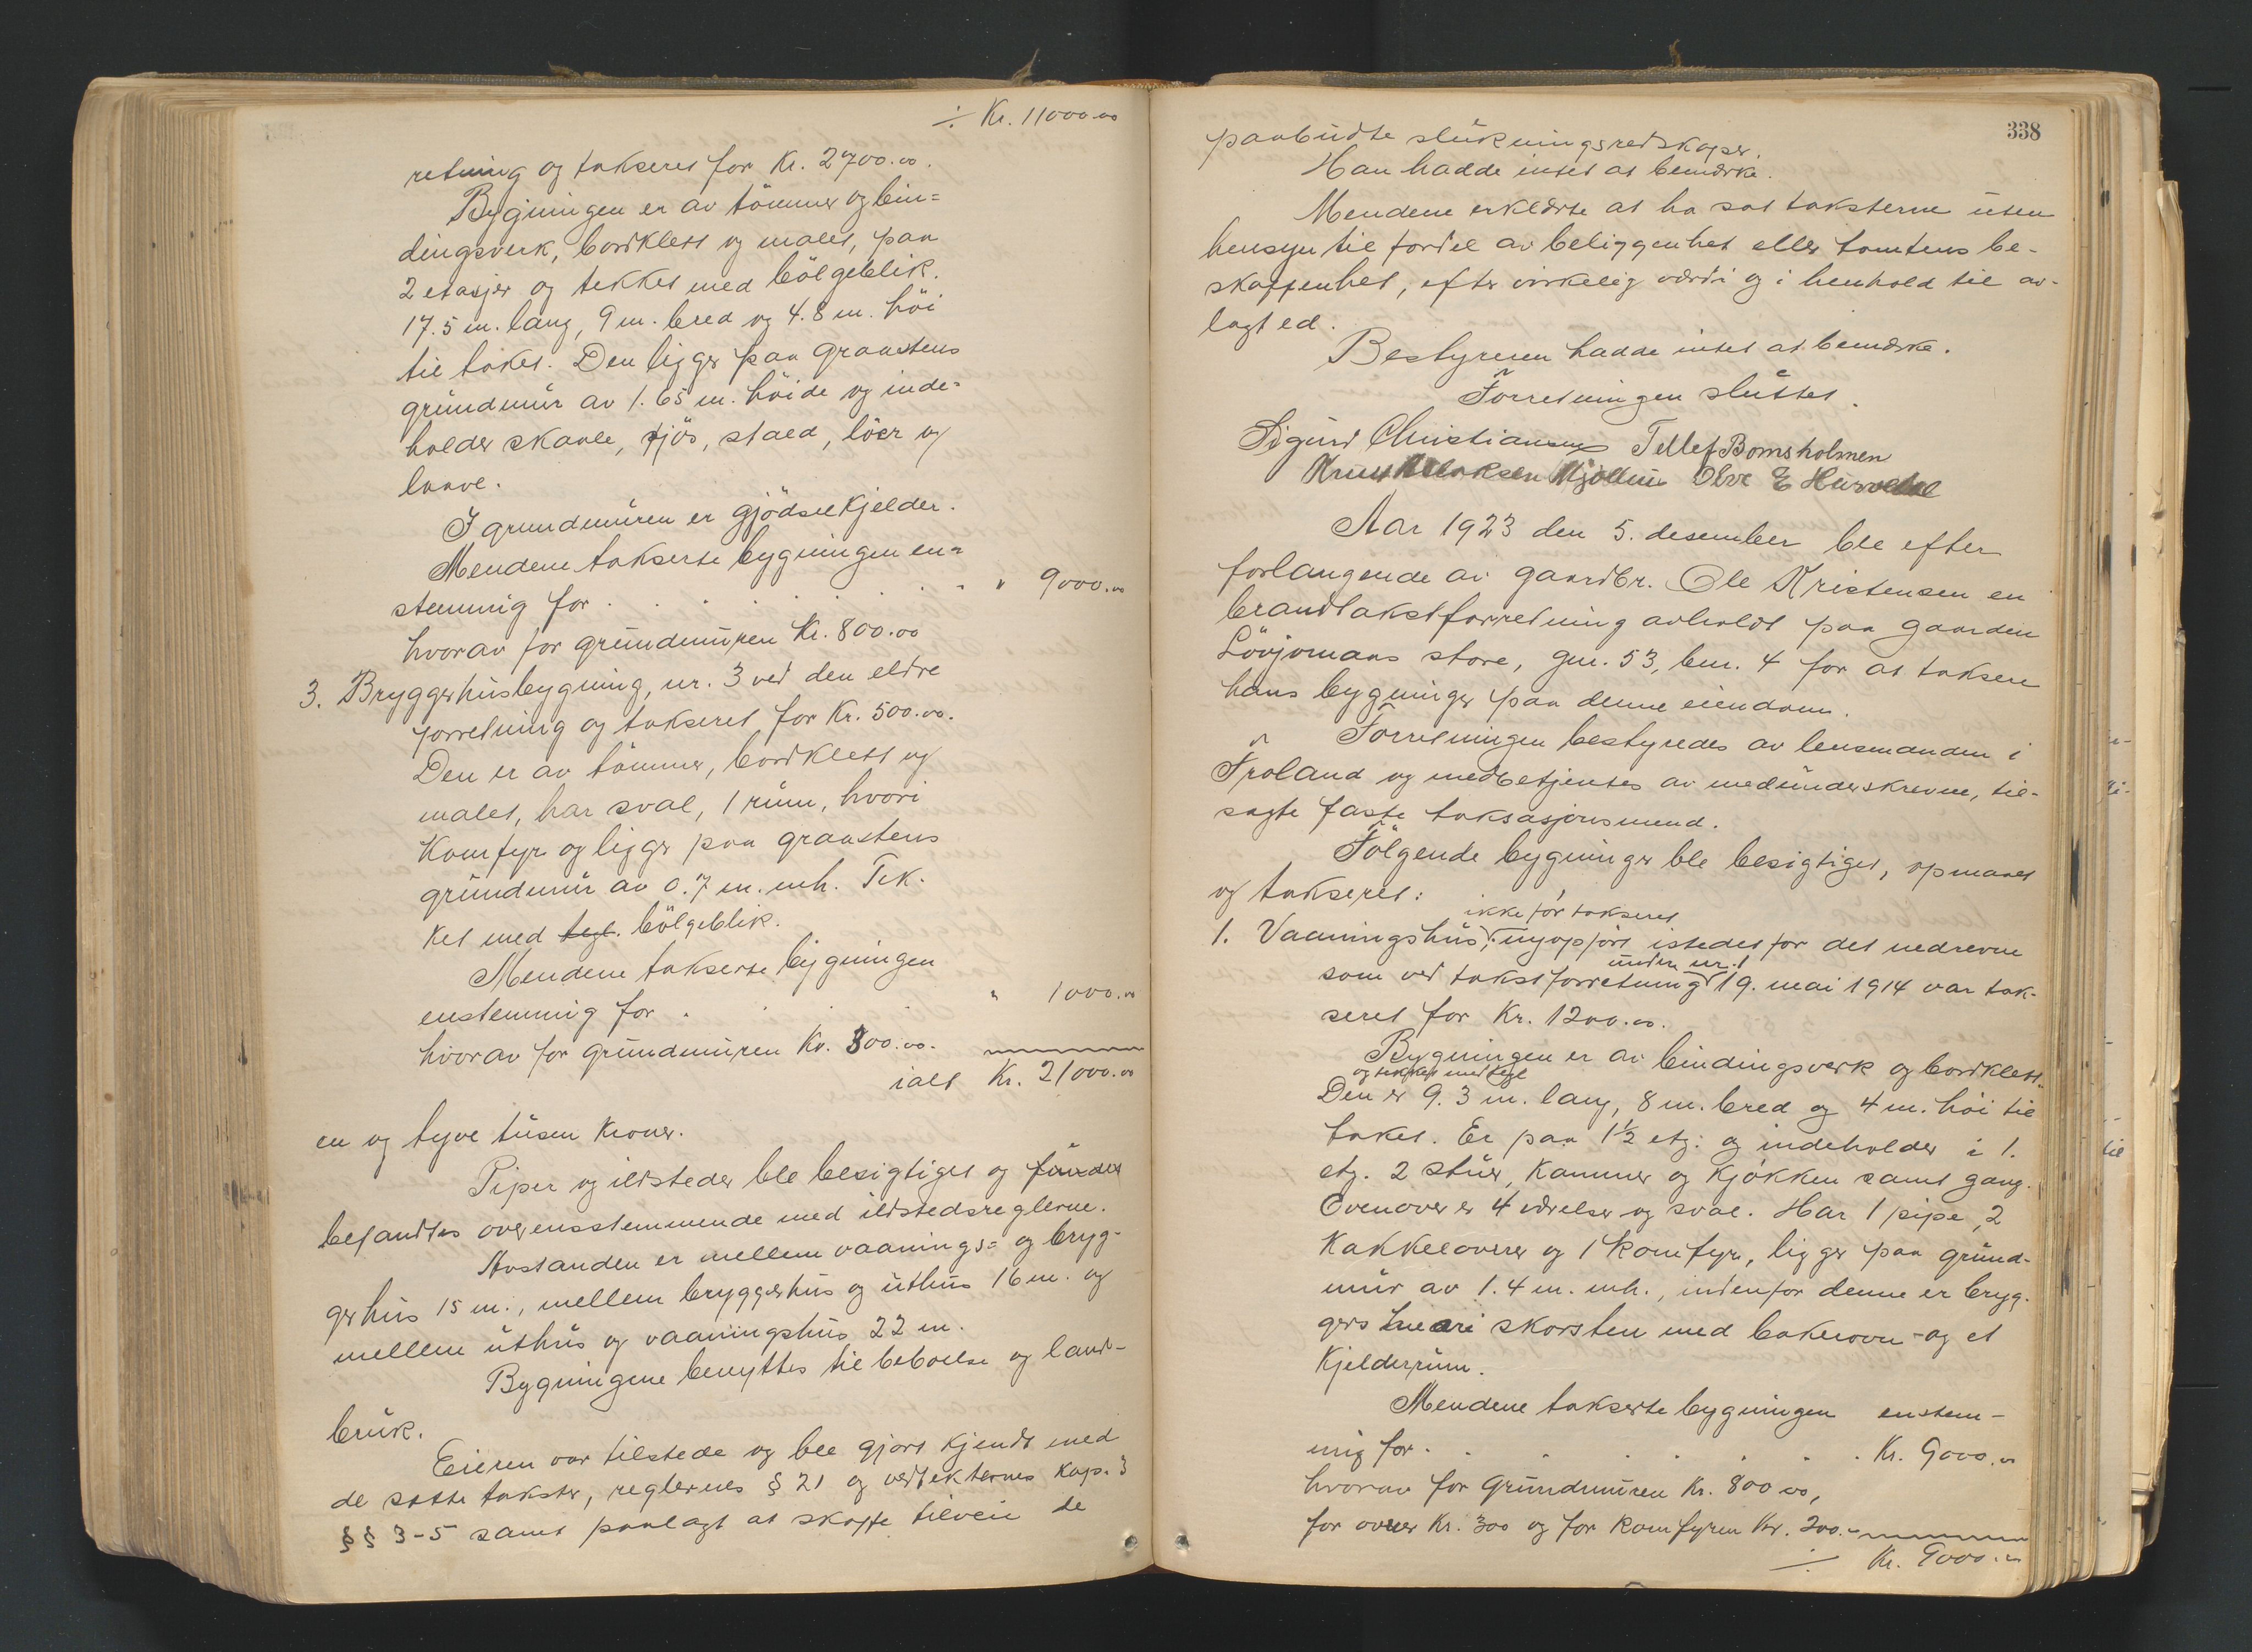 ÷ Kr. 11000.00
retning og takseret for Kr. 2700.00.
Bygningen er av tömmer og bin=
dingsverk, bordklett og malet, paa
2 etasjer og tekket med bölgeblik.
17.5 m. lang, 9 m. bred og 4.8 m. höi
til taket. Den ligger paa graastens
grundmur av 1.65 m. höide og inde=
holder skaale, fjös, stald, löer og
laave.
I grundmuren er gjödselkjelder.
Mendene takserte bygningen en=
stemmig for . . . . . . . . " 9000.00
hvorav for grundmuren Kr. 800.00
3. Bryggerhusbygning, nr. 3 ved den eldre
forretning og takseret for Kr. 500.00.
Den er av tömmer, bordklett og
malet, har sval, 1 rum, hvori
komfyr og ligger paa graastens
grundmur av 0.7 m. mh. Tek-
ket med tegl. bölgeblik.
Mendene takserte bygningen
enstemmig for . . . . " 1000.00
hvorav for grundmuren Kr. 300.00.
ialt Kr. 21000.00
en og tyve tusen kroner.
Piper og ildsteder ble besigtiget og fundet
befandtes overensstemmende med ildstedsreglerne.
Avstanden er mellem vaanings= og bryg-
gerhus 15 m., mellem bryggerhus og uthus 16 m. og
mellem uthus og vaaningshus 22 m.
Bygningene benyttes til beboelse og land-
bruk.
Eieren var tilstede og ble gjort kjendt med
de satte takster, reglernes § 21 og vedtekternes kap. 3
§ § 3-5 samt paalagt at skaffe tilveie de
338
paabudte slukningsredskaper.
Han hadde intet at bemærke.
Mendene erklærte at ha sat taksterne uten
hensyn til fordel av beliggenhet eller tomtens be-
skaffenhet, efter virkelig værdi og i henhold til av-
lagt ed.
Bestyreren hadde intet at bemærke.
Forretningen sluttet.
Sigurd Christiansen Tellef Bomsholmen
Knut Aslaksen Mjölhus Olve E
Aar 1923 den 5. desember ble efter
forlangende av gaardbr. Ole Kristensen en
brandtakstforretning avholdt paa gaarden
Lövjomaas store, gnr. 53, bnr. 4 for at taksere
hans bygninger paa denne eiendom.
Forretningen bestyredes av lensmanden i
Froland og medbetjentes av medunderskrevne, til-
sagte faste taksasjonsmend.
Fölgende bygninger ble besigtiget, opmaalt
og takseret:
ikke för takseret
1. Vaaningshus, nyopfört istedet for det nedrevne
under nr. 1
som ved takstforretning 19. mai 1914 var tak-
seret for Kr. 1200.00.
Bygningen er av bindingsverk og bordklett
og tekket med tegl
Den er 9.3 m. lang, 8 m. bred og 4 m. höi til
taket. Er paa 1½ etg. og indeholder i 1.
etg. 2 stuer, kammer og kjökken samt gang.
Ovenover er 4 værelser og sval. Har 1 pipe, 2
kakkelovner og 1 komfyr, ligger paa grund-
mur av 1.4 m. mh., indenfor denne er bryg-
gers hvori skorsten med bakerovn og et
kjelderrum.
Mendene takserte bygningen enstem-
mig for . . . . . . . Kr. 9000.00
hvorav for grundmuren Kr. 800.00,
for ovner Kr. 300 og for komfyren Kr. 200.-
÷ Kr. 9000.00